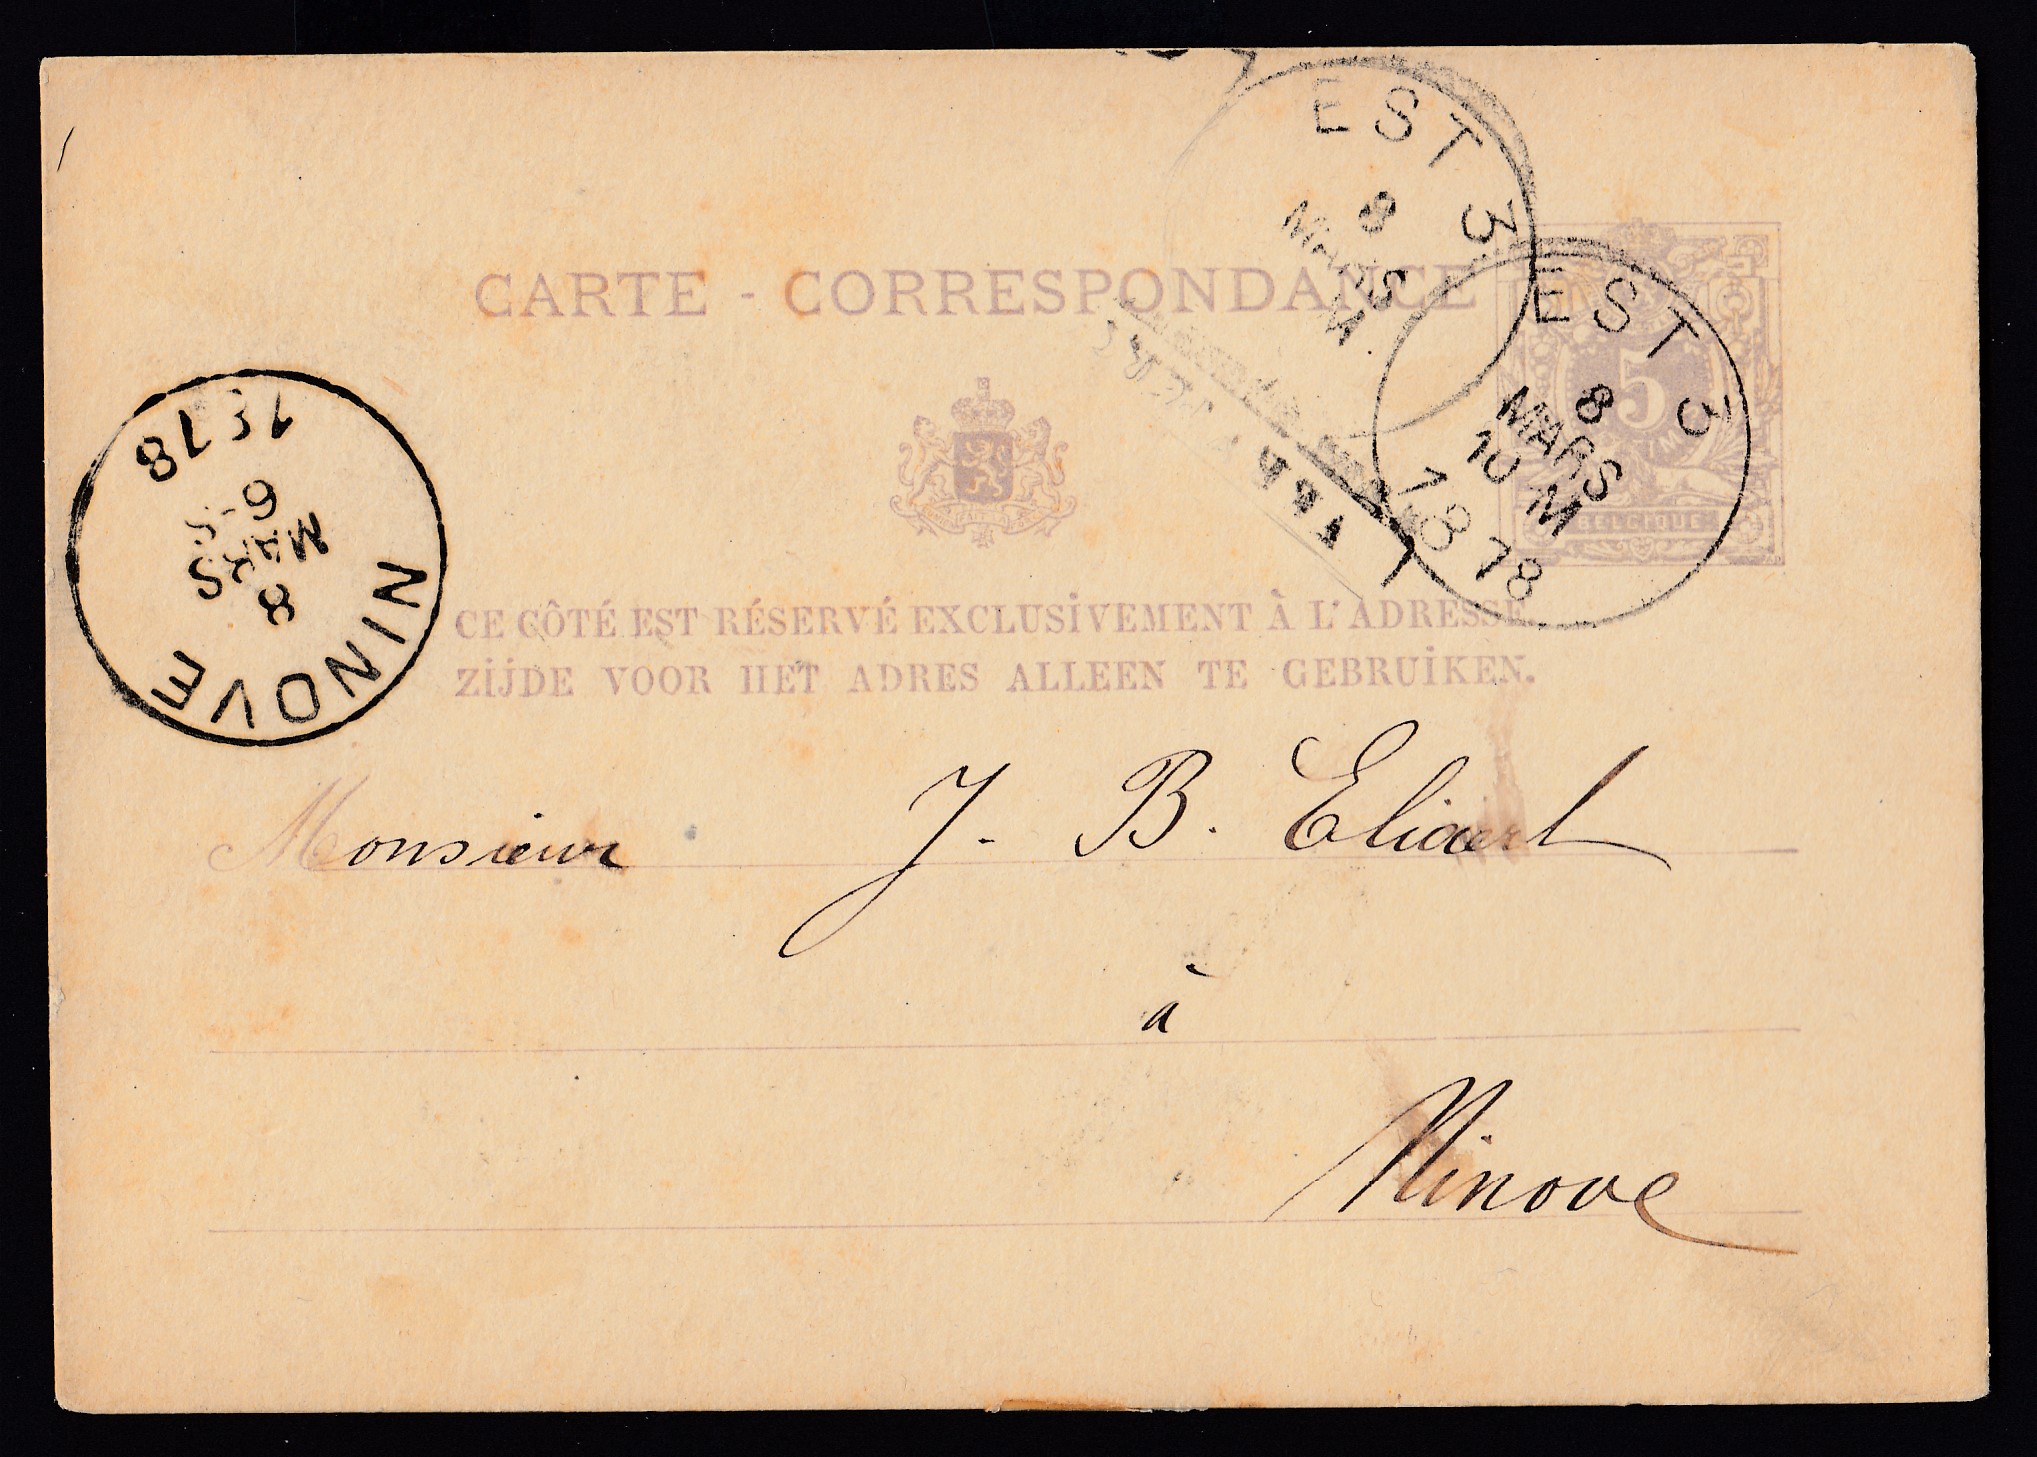 EST 3
8
MARS
M
CARTE - CORRESPONDANCE
EST 3
8
MARS
10 M
1878
5
BELGIQUE
1878
NINOVE
8
MARS
CE CÔTÉ EST RÉSERVÉ EXCLUSIVEMENT À L'ADRESSE.
ZIJDE VOOR HET ADRES ALLEEN TE GEBRUIKEN.
Monsieur J. B. Eliaert
à
Ninove